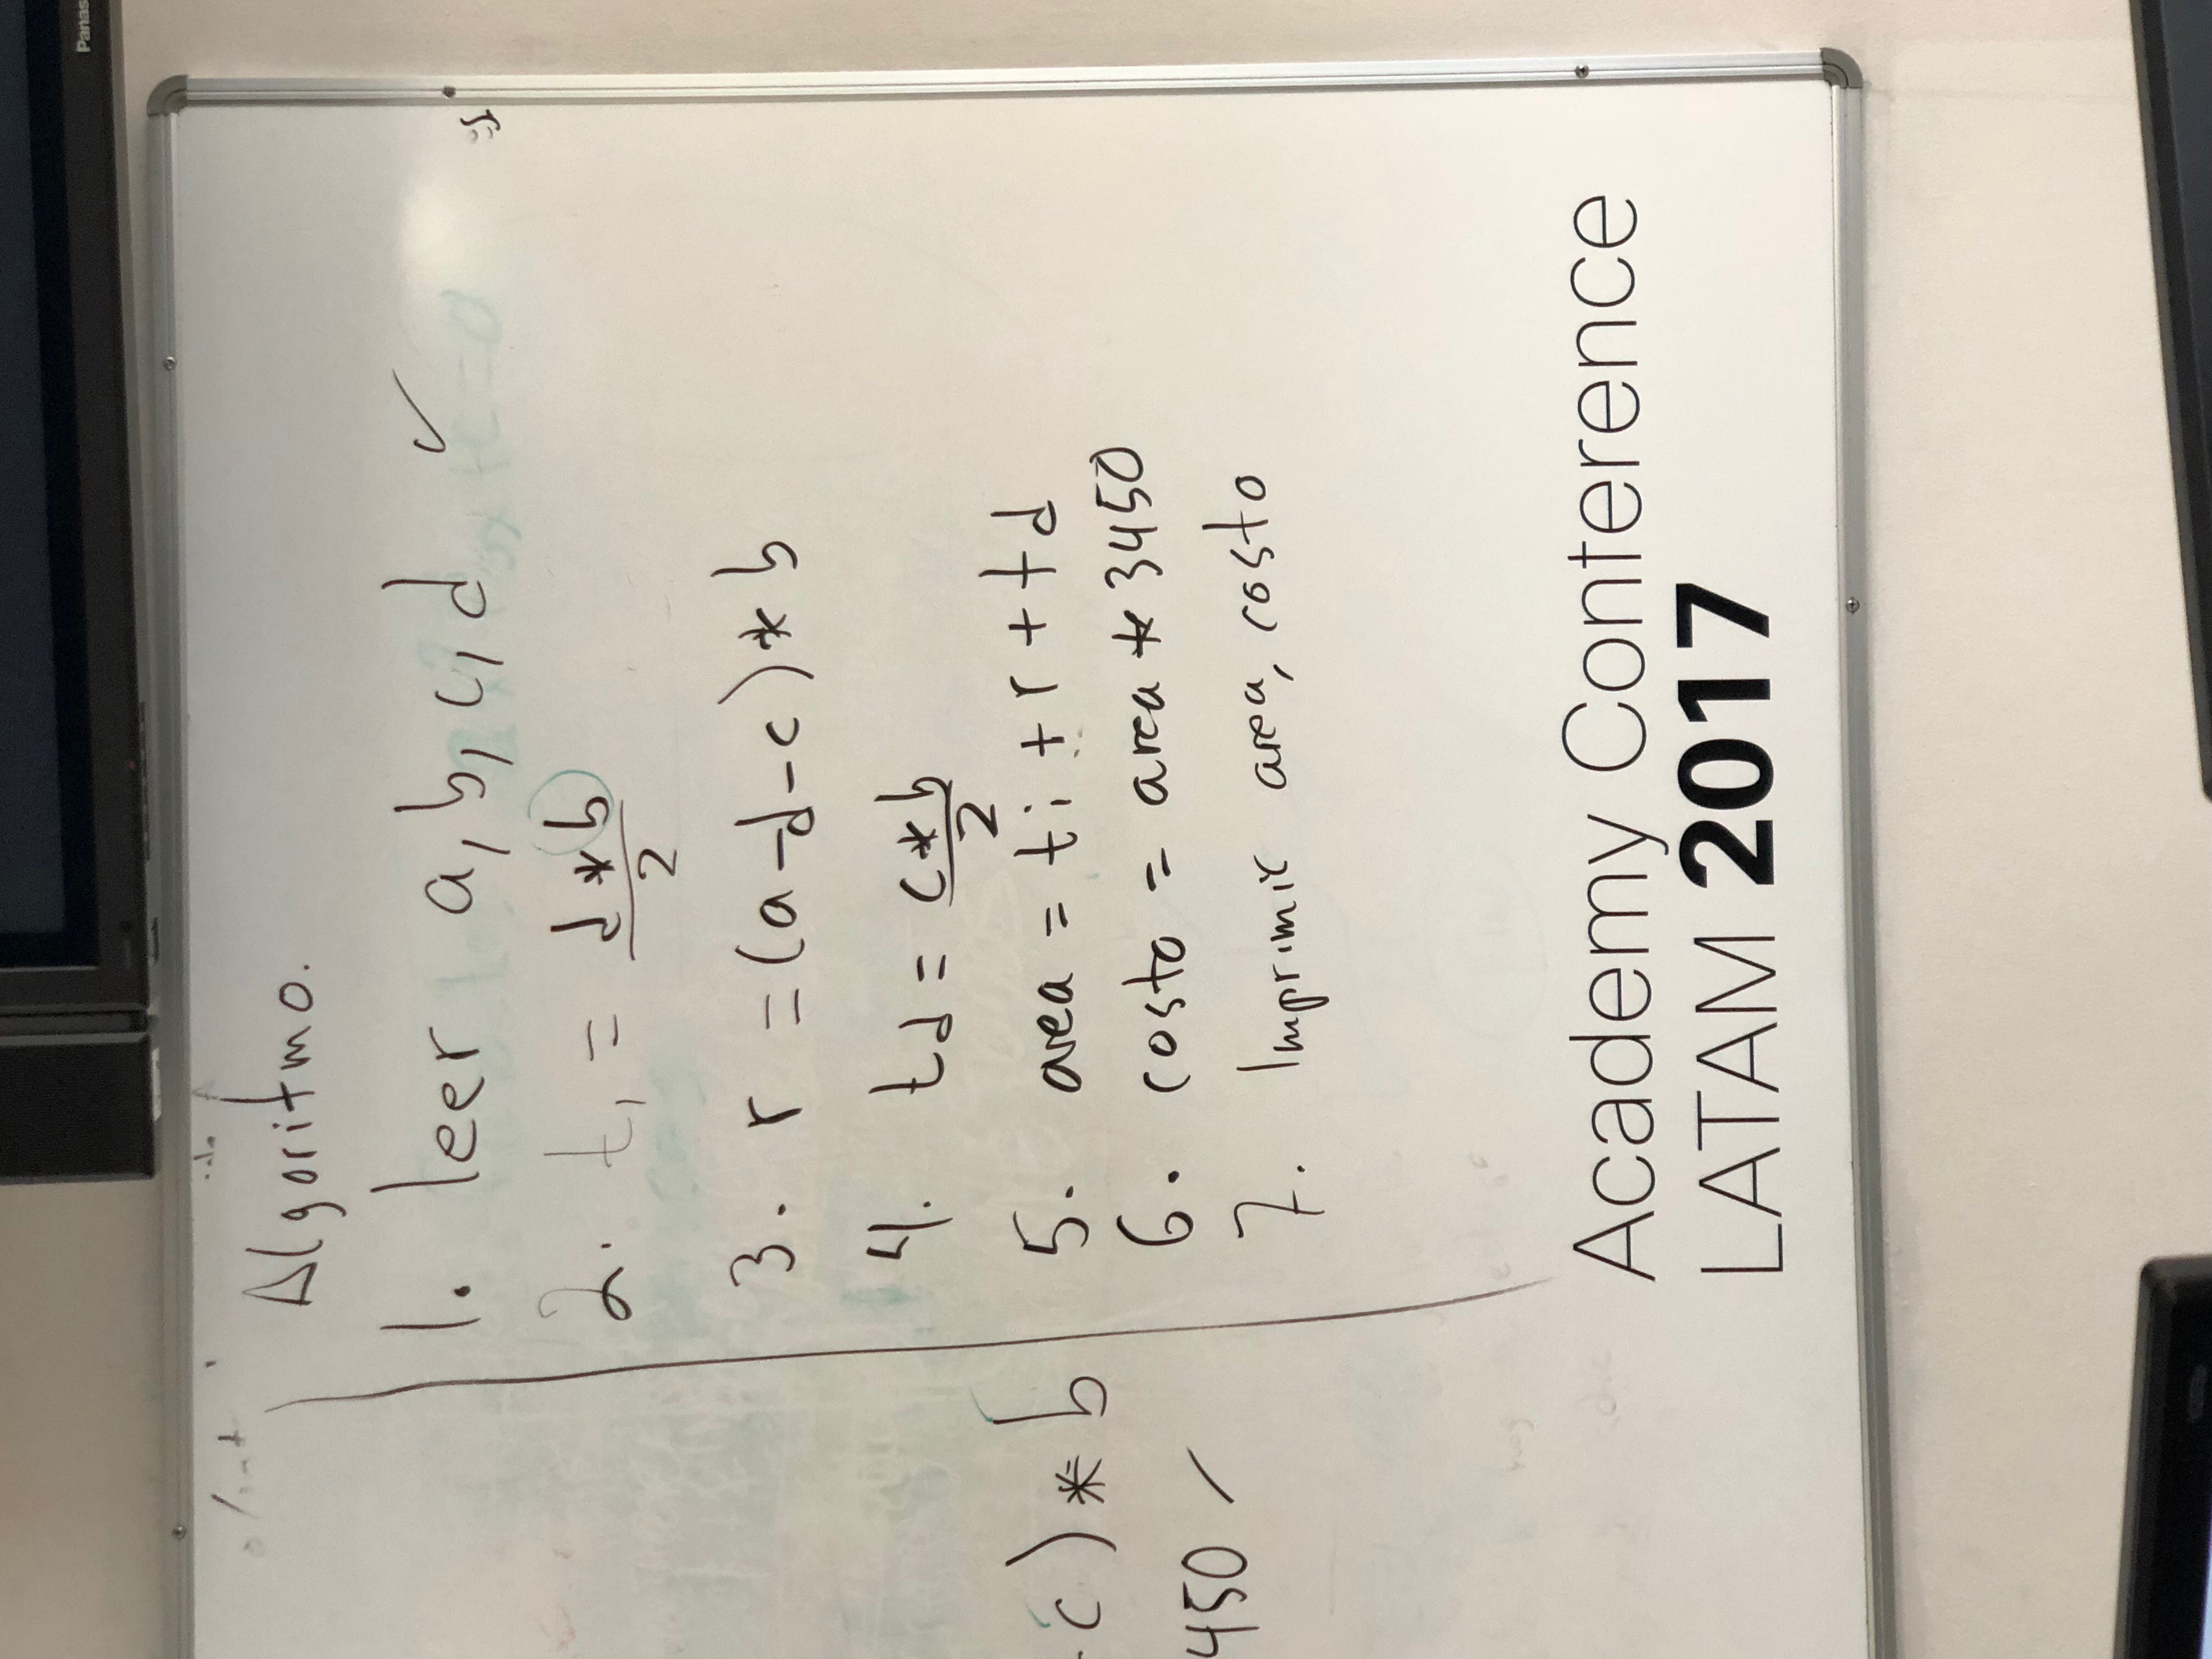 Panas
Algoritmo.
1. leer a, b, c, d ✓
2. t, = d * b
2
3. r = (a-d-c) * b
4. td = c * b
2
c) * b
5. area = ti + r + td
6. costo = area * 3450
450
7. Imprimir area, costo
Academy Conference
LATAM 2017